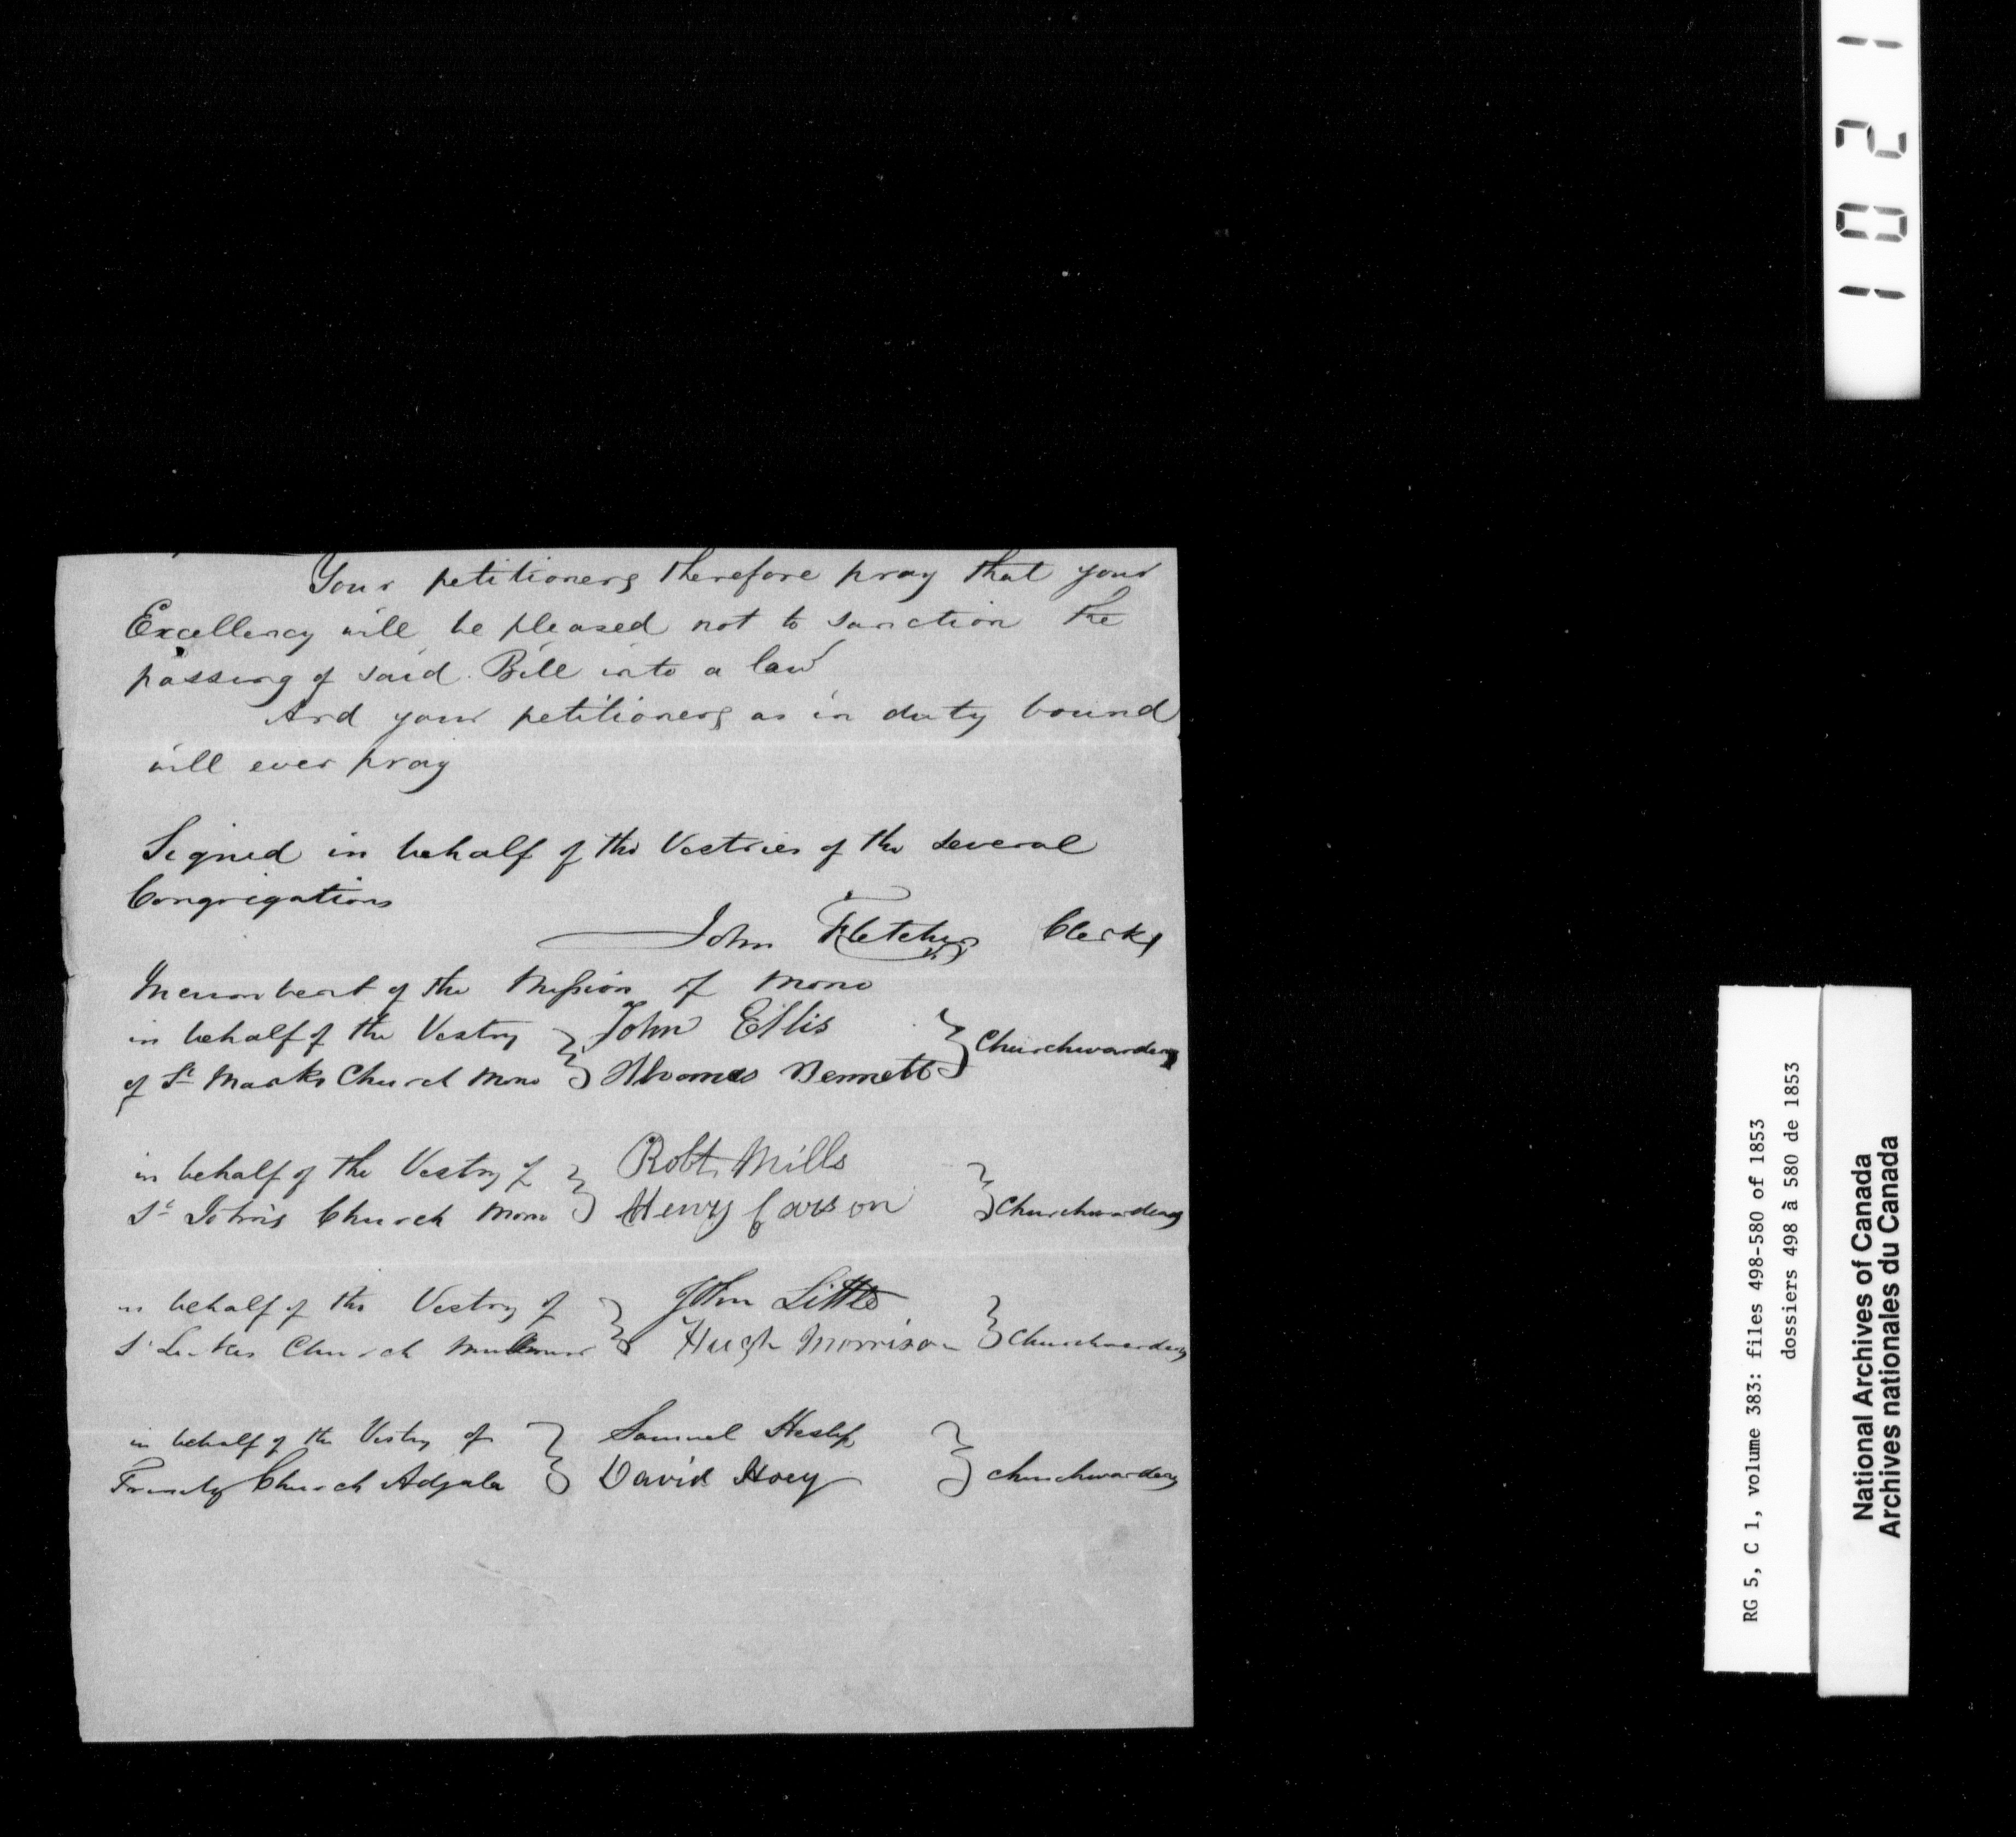 Your petitioners therefore pray that your
Excellency will be pleased not to sanction the
passing of said Bill into a law
And your petitioners as in duty bound
will ever pray
Signed in behalf of the Vestries of the several
Congregations
John Fletcher Clerk
Incumbent of the Mission of Mono
in behalf of the Vestry } John Ellis } Churchwardens
of St Marks Church Mono } Thomas Bennett
in behalf of the Vestry of } Robt. Mills
St John's Church Mono } Henry Carson } Churchwardens
in behalf of the Vestry of } John Little
St Lukes Church } Hugh Morrison } Churchwardens
in behalf of the Vestry of } Samuel Heslip
Trinity Church Adjala } David Hoey } Churchwardens
1021
RG 5, C 1, volume 383: files 498-580 of 1853
dossiers 498 à 580 de 1853
National Archives of Canada
Archives nationales du Canada